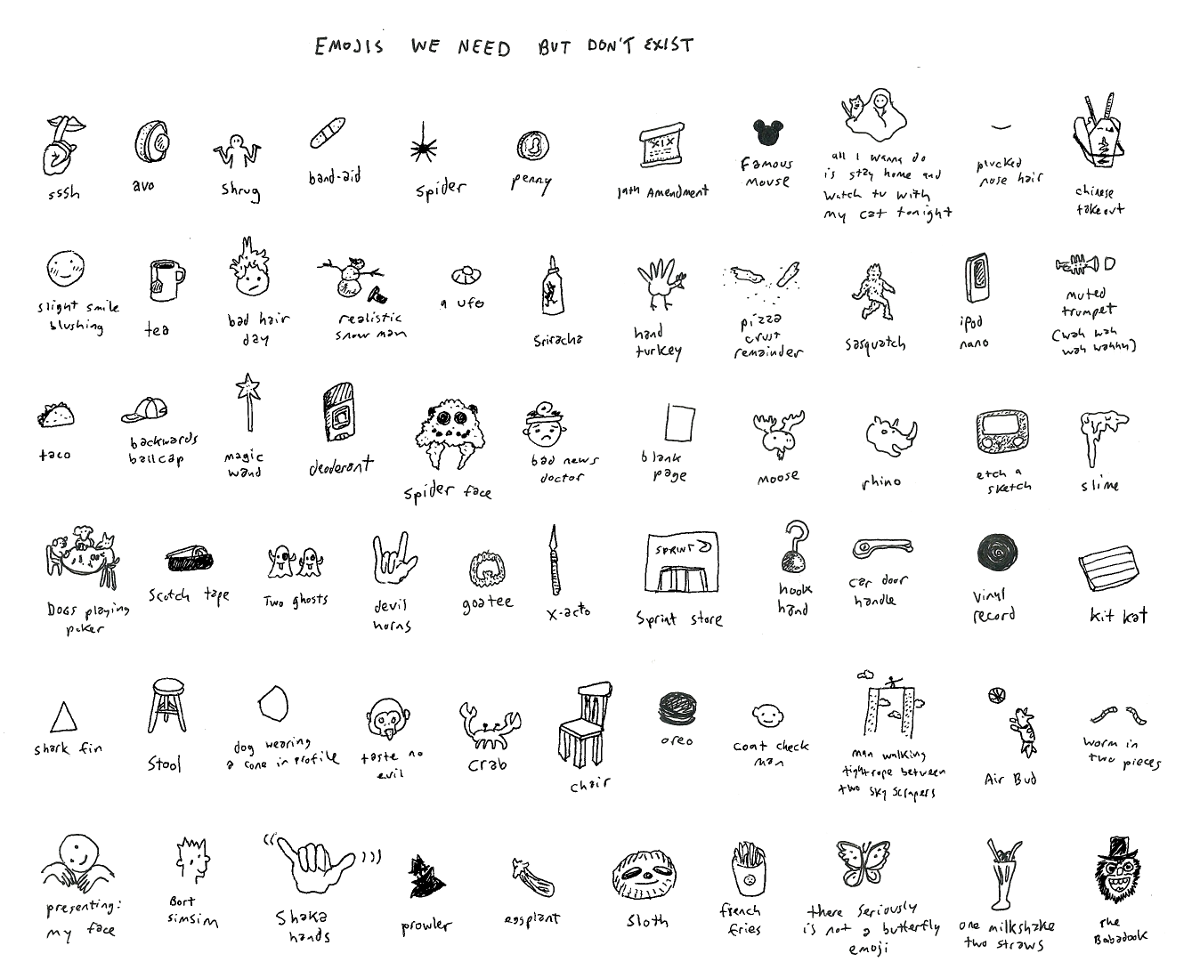 EMOJIS WE NEED BUT DON'T EXIST
sssh
avo
shrug
band-aid
spider
penny
XIX
19th Amendment
Famous
mouse
all I wanna do
is stay home and
watch tv with
my cat tonight
plucked
nose hair
chinese
takeout
slight smile
blushing
tea
bad hair
day
realistic
snowman
a ufo
Sriracha
hand
turkey
pizza
crust
remainder
sasquatch
ipod
nano
muted
trumpet
(wah wah
wah wahhh)
taco
backwards
ballcap
magic
wand
deodorant
spider face
bad news
doctor
blank
page
moose
rhino
etch a
sketch
slime
Dogs playing
poker
Scotch tape
Two ghosts
devil
horns
goatee
x-acto
SPRINT
Sprint store
hook
hand
car door
handle
vinyl
record
kit kat
shark fin
Stool
dog wearing
a cone in profile
taste no
evil
crab
chair
oreo
coat check
man
man walking
tightrope between
two sky scrapers
Air Bud
worm in
two pieces
presenting:
my face
Bort
Simsim
Shaka
hands
prowler
eggplant
Sloth
french
fries
there seriously
is not a butterfly
emoji
one milkshake
two straws
The
Babadook